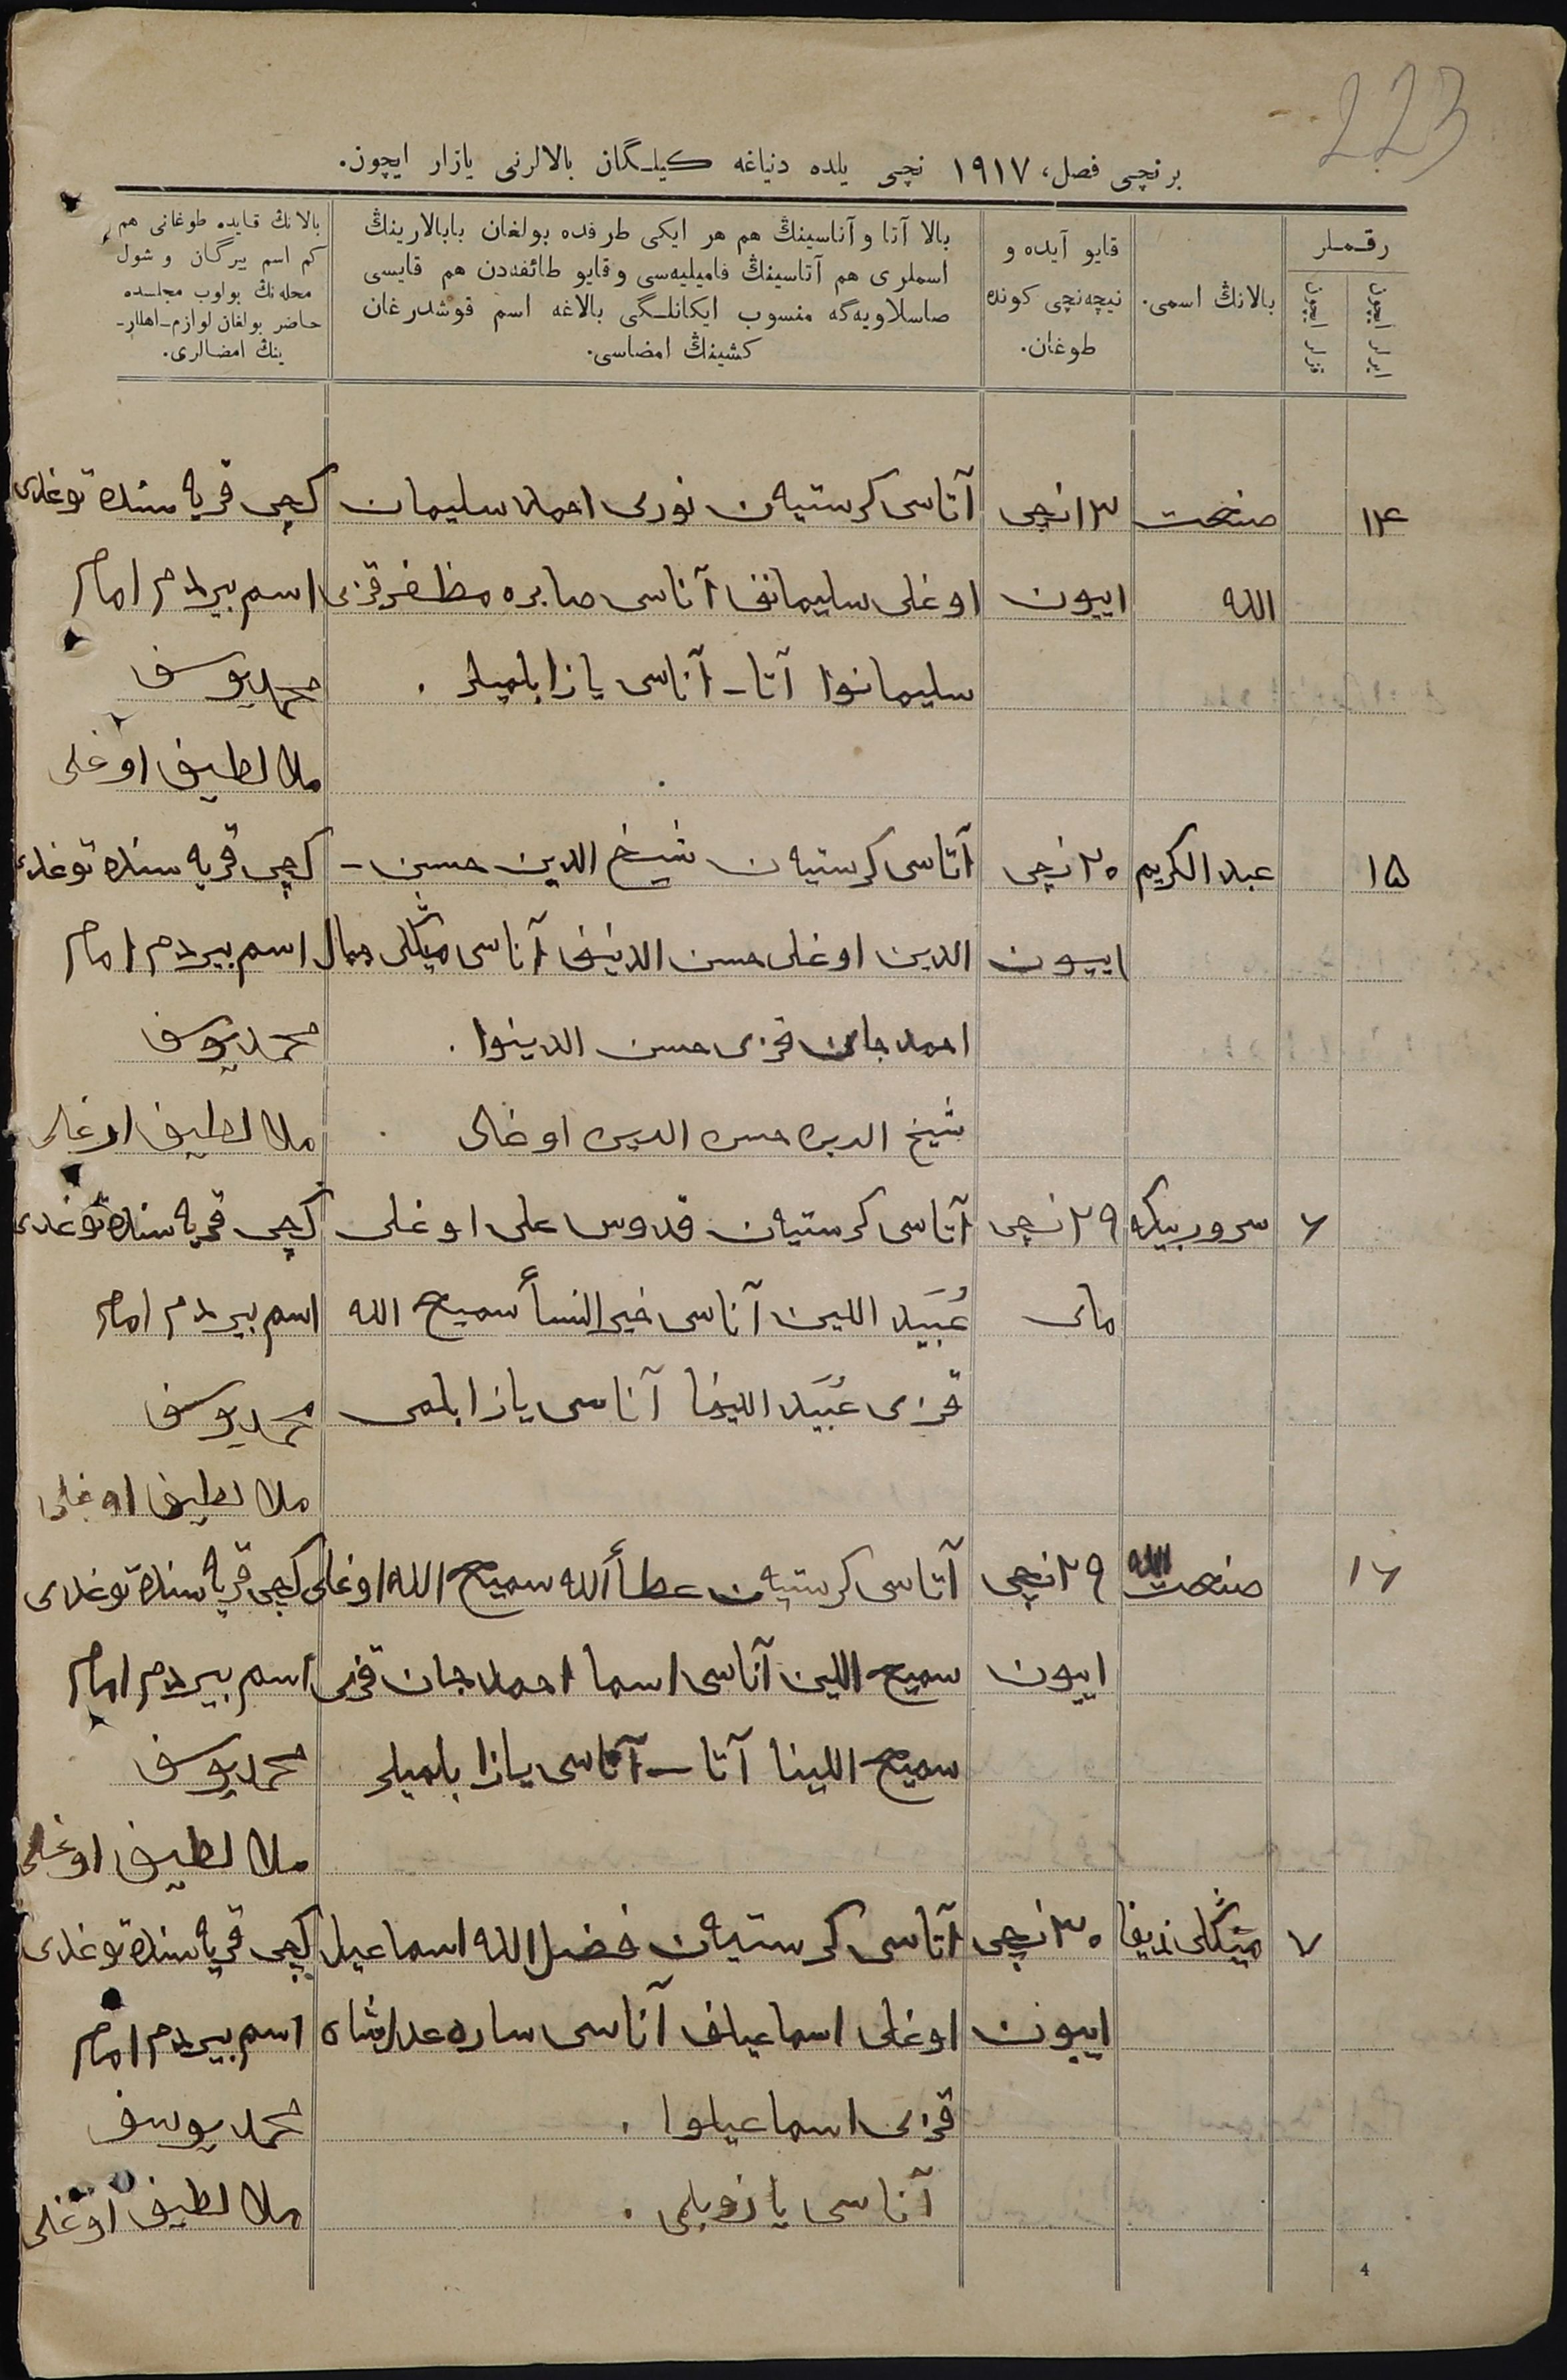 223
برنچی فصل، ١٩١٧ نچی یلده دنیاغه کیلگان بالالرنی یازار ایچون.
رقملر
ایرلر ایچون
قزلر ایچون
بالانڭ اسمی.
قایو آیده و
نیچه‌نچی کونده
طوغان.
بالا آتا و آناسینڭ هم هر ایکی طرفده بولغان بابالارینڭ
اسملری هم آتاسینڭ فامیلیه‌سی و قایو طائفه‌دن هم قایسی
صاسلاویه‌گه منسوب ایکانلگی بالاغه اسم قوشدرغان
کشینڭ امضاسی.
بالانڭ قایده طوغانی هم
کم اسم بیرگان و شول
محله‌نڭ بولوب مجلسده
حاضر بولغان لوازم-اهللر-
ینڭ امضالری.
١٤ صنعت ١٣نچی آتاسی کرستیه‌ن نوری احمد سلیمان کچی قریه سنده توغدی
الله ایيون اوغلی سلیمانف آناسی صابره مظفر قزی اسم بیردم امام
سلیمانوا آتا-آناسی یازا بلمیلر. محمد یوسف
ملا لطیف اوغلی
١٥ عبد الکریم ٢٠نچی آتاسی کرستیه‌ن شیخ الدین حسن- کچی قریه سنده توغدی
ایيون الدین اوغلی حسن الدینف آناسی مڭلی جمال اسم بیردم امام
احمد جان قزی حسن الدینوا. محمد یوسف
شیخ الدین حسن الدین اوغلی ملا لطیف اوغلی
٦ سرور بیکه ٢٩نچی آتاسی کرستیه‌ن قدوس علی اوغلی کچی قریه سنده توغدی
مای عُبَید اللین آناسی خیر النسأ سمیع الله اسم بیردم امام
قزی عُبَید اللینا آناسی یازا بلمی محمد یوسف
ملا لطیف اوغلی
١٦ صنعت الله ٢٩نچی آتاسی کرستیه‌ن عطأ الله سمیع الله اوغلی کچی قریه سنده توغدی
ایيون سمیع اللین آناسی اسما احمد جان قزی اسم بیردم امام
سمیع اللینا آتا-آناسی یازا بلمیلر محمد یوسف
ملا لطیف اوغلی
٧ مڭلی زیفا ٣٠نچی آتاسی کرستیه‌ن فضل الله اسماعیل کچی قریه سنده توغدی
ایيون اوغلی اسماعیلف آناسی ساره عدلشاه اسم بیردم امام
قزی اسماعیلوا. محمد یوسف
آناسی یازو بلمی. ملا لطیف اوغلی
4